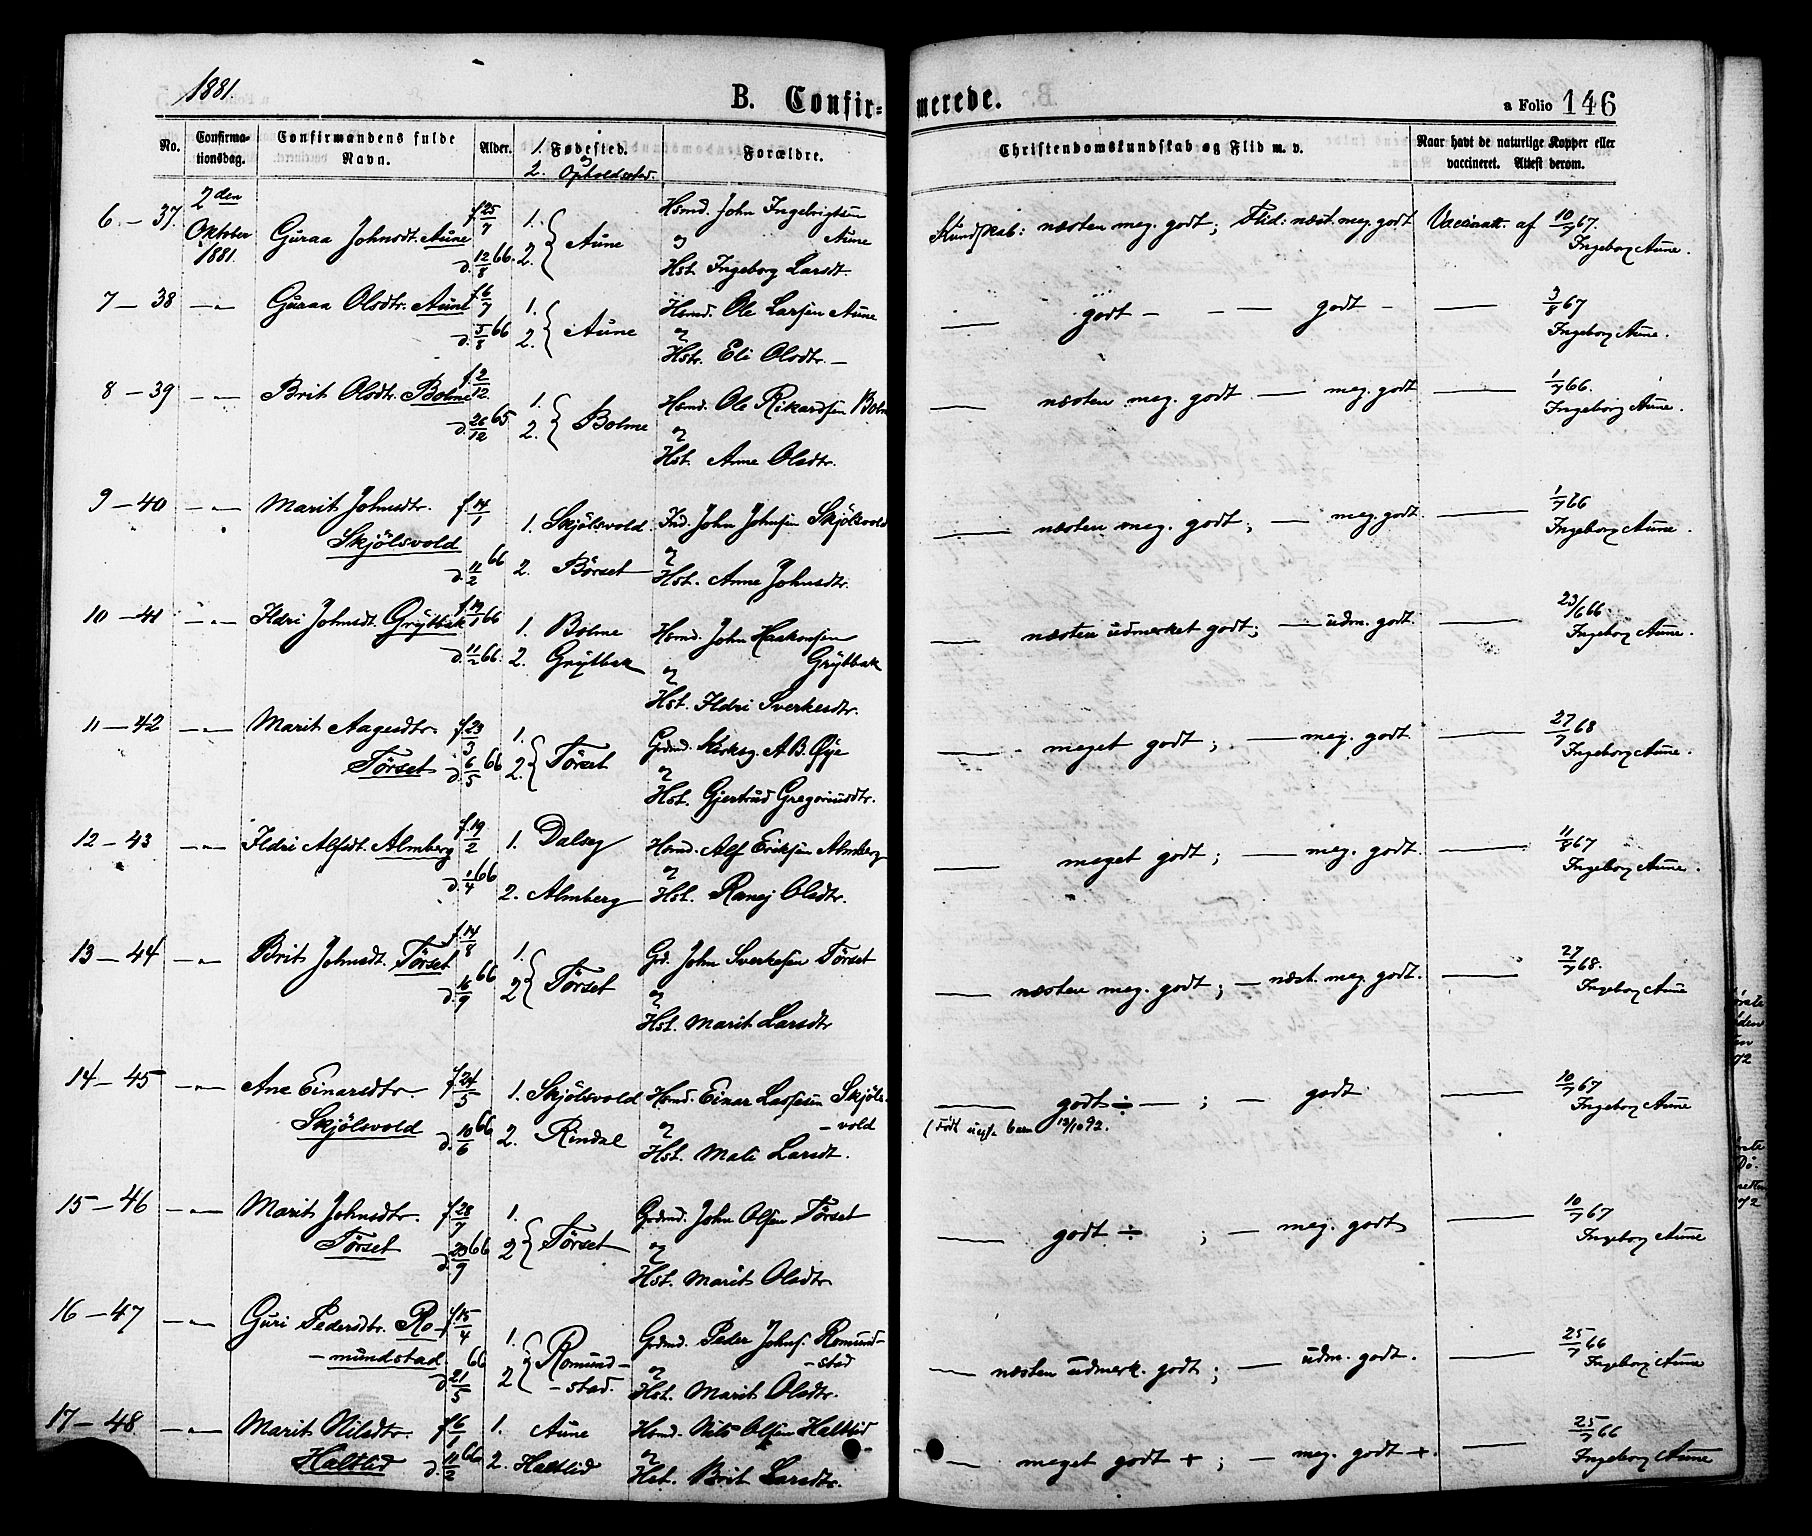 1881.
B. Confir-
merede.
a Folio 146
No.
Confirma-
tionsdag.
Confirmandens fulde
Navn.
Alder.
1. Fødested.
og
2. Opholdssted.
Forældre.
Christendomskundskab og Flid m. v.
Naar havt de naturlige Kopper eller
vaccineret. Attest derom.
6. - 37.
2den
Oktober
1881.
Guraa Johnsdt. Aune
f. 25/7
d. 12/8 66.
1.
2. Aune
Hsmd. John Ingebrigtsen
og Aune
Hst. Ingeborg Larsdt.
Kundskab: næsten meg. godt; Flid: næst. meg. godt
Vaccinatt. af 10/7 67.
Ingeborg Aune.
7 - 38
Guraa Olsdtr. Aune
f. 6/7
d. 5/8 66
1.
2. Aune
Hsmd. Ole Larsen Aune
og
Hstr. Eli Olsdtr. -
godt - - godt -
3/8 67
Ingeborg Aune.
8 - 39
Brit Olsdtr. Bolme
f. 2/12
d. 26/12 65
1.
2. Bolme
Hsmd. Ole Rikardsen Bolm
og
Hst. Anne Olsdtr.
næsten meg. godt - meg. godt
1/7 66.
Ingeborg Aune.
9 - 40
Marit Johnsdt.
Skjölsvold
f. 14/1
d. 11/2 66
1. Skjölsvold
2. Börset
Ind. John Johnsen Skjölsvold
og
Hst. Anne Johnsdtr.
næsten meg. godt; - meg. godt
1/7 66
Ingeborg Aune.
10 - 41
Ildri Johnsdt. Grýtbak
f. 19/1 66
d. 11/2 66.
1. Bolme
2. Grýtbak
Hsmd. John Haakonsen
Grýtbak
og
Hst. Ildri Sverkesdtr.
næsten udmerket godt; - udm. godt.
23/6 66
Ingeborg Aune.
11 - 42
Marit Aagesdtr.
Törset
f. 23/3
d. 6/5 66
1.
2. Törset
Grdmd. Kirksg. A. B. Øye
og
Hst. Gjertrud Gregoriusdtr.
meget godt; - meg. godt
27/7 68
Ingeborg Aune.
12 - 43
Ildri Alfsdt. Almberg
f. 19/2
d. 1/4 66
1. Dalseg
2. Almberg
Hsmd. Alf Eriksen Almberg
og
Hst. Ranej Olsdtr.
meget godt; - meg. godt.
67
Ingeborg Aune.
13 - 44
Brit Johnsdt. Törset
f. 14/8
d. 16/9 66
1.
2 Törset
Grd. John Sverkesen Törset
og
Hst. Marit Larsdtr
næsten meg. godt; - næst. meg. godt.
27/7 68.
Ingeborg Aune
14 - 45
Ane Einarsdtr.
Skjölsvold
f. 24/5
d. 10/6 66
1. Skjölsvold
2. Rindal
Hsmd. Einar Lassesen Skjöls-
og - vold
Hst. Mali Larsdt.
godt ÷ - ; - godt
(Født uegte barn 13/10 92.
10/7 67
Ingeborg Aune
15 - 46
Marit Johnsdtr.
Törset
f. 28/7
d. 23/9 66
1.
2 Törset
Grdmd. John Olsen Törset
og
Hst. Marit Olsdtr
godt ÷ ; - meg. godt
10/7 67
Ingeborg Aune
16 - 47
Guri Pedersdtr. Ro-
- mundstad
f. 15/4
d. 21/5 66
1.
2 Romund-
- stad.
Grdmd. Peder Johns. Romund-
og - stad
Hst. Marit Olsdtr.
næsten udmerk. godt; - udm. godt.
25/7 66
Ingeborg Aune
17 - 48
Marit Nilsdtr.
Haltlid
f. 6/1
d. 11/2 66
1. Aune
2. Haltlid
Hsmd. Nils Olsen Haltlid
og
Hst. Brit Larsdtr.
meget godt +; - meg. godt +.
25/7 66
Ingeborg Aune